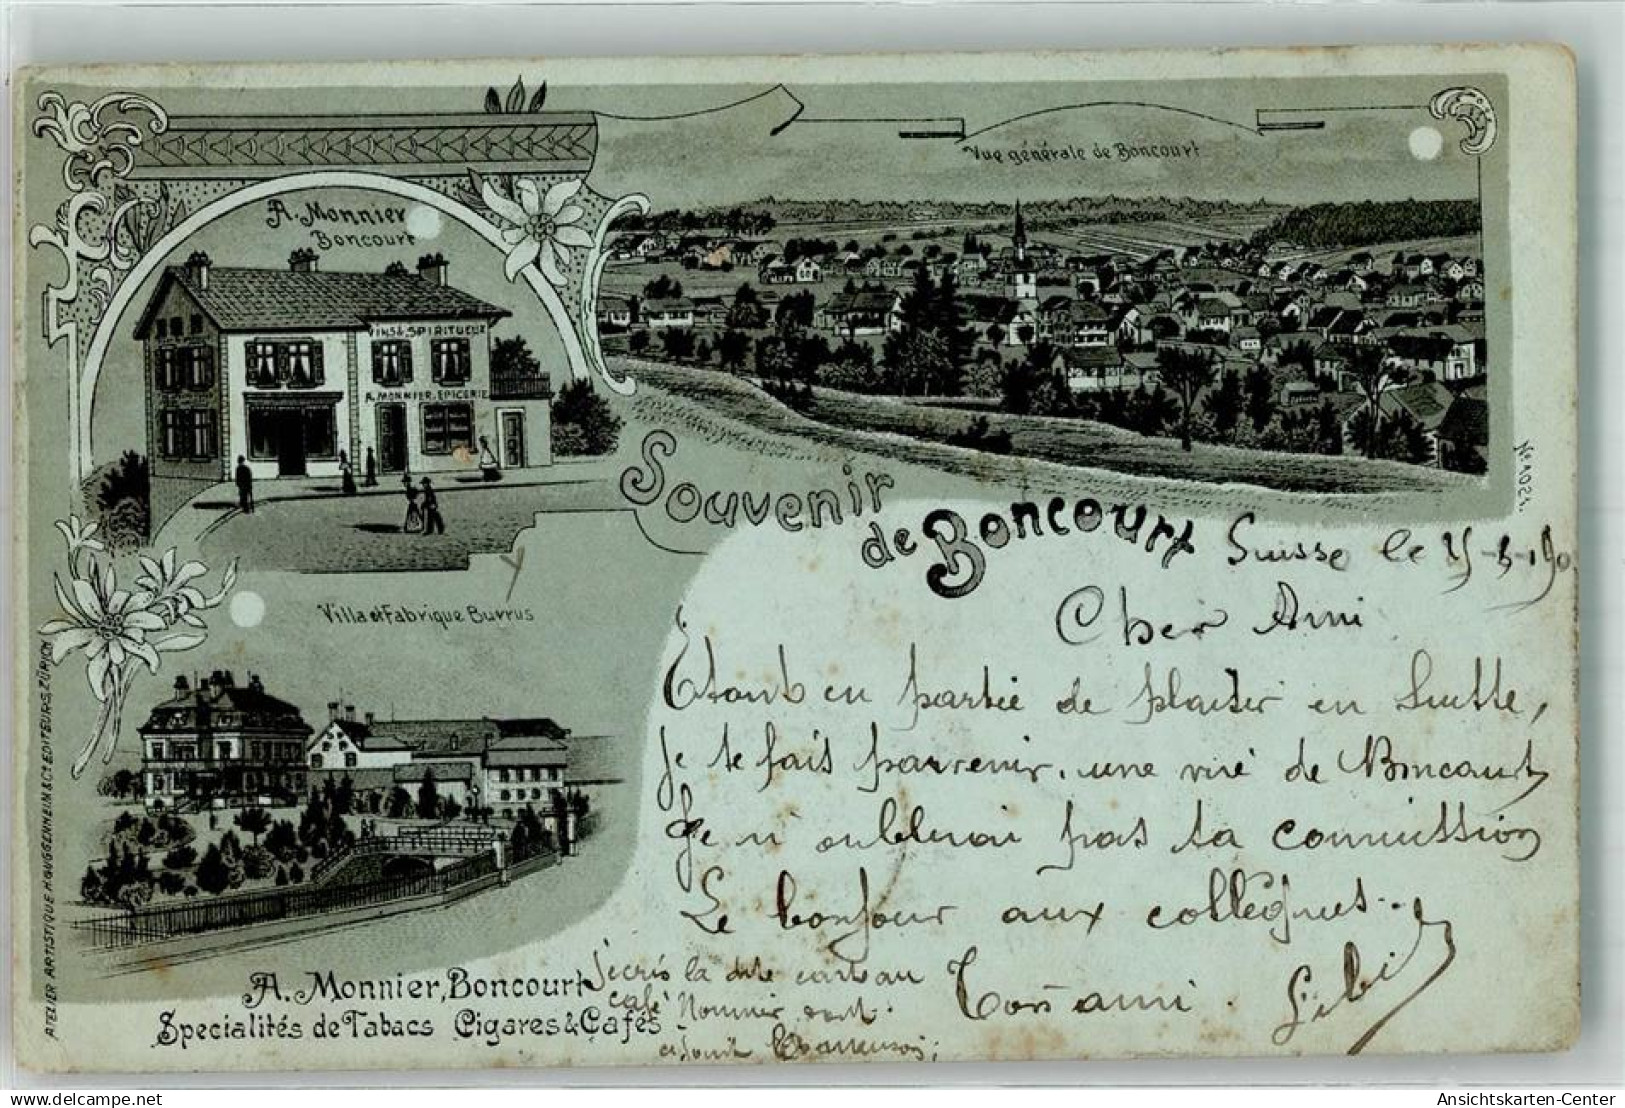 Vue générale de Boncourt
A. Monnier
Boncourt
VINS & SPIRITUEUX
A. MONNIER, EPICERIE
No 1021.
Souvenir
de Boncourt
Suisse le
Villa et Fabrique Burrus
Cher Ami
Etant en partie de plaisir en Suisse,
je te fais parvenir, une vue de Boncourt
Je n'oublierai pas ta commission
Le bonjour aux collègues.
Ton ami.
J'écris la dite carte au
café Monnier
A. Monnier, Boncourt
Specialités de Tabacs Cigares & Cafés
ATELIER ARTISTIQUE H. GUGGENHEIM & Co. EDITEURS, ZÜRICH
Ansichtskarten-Center